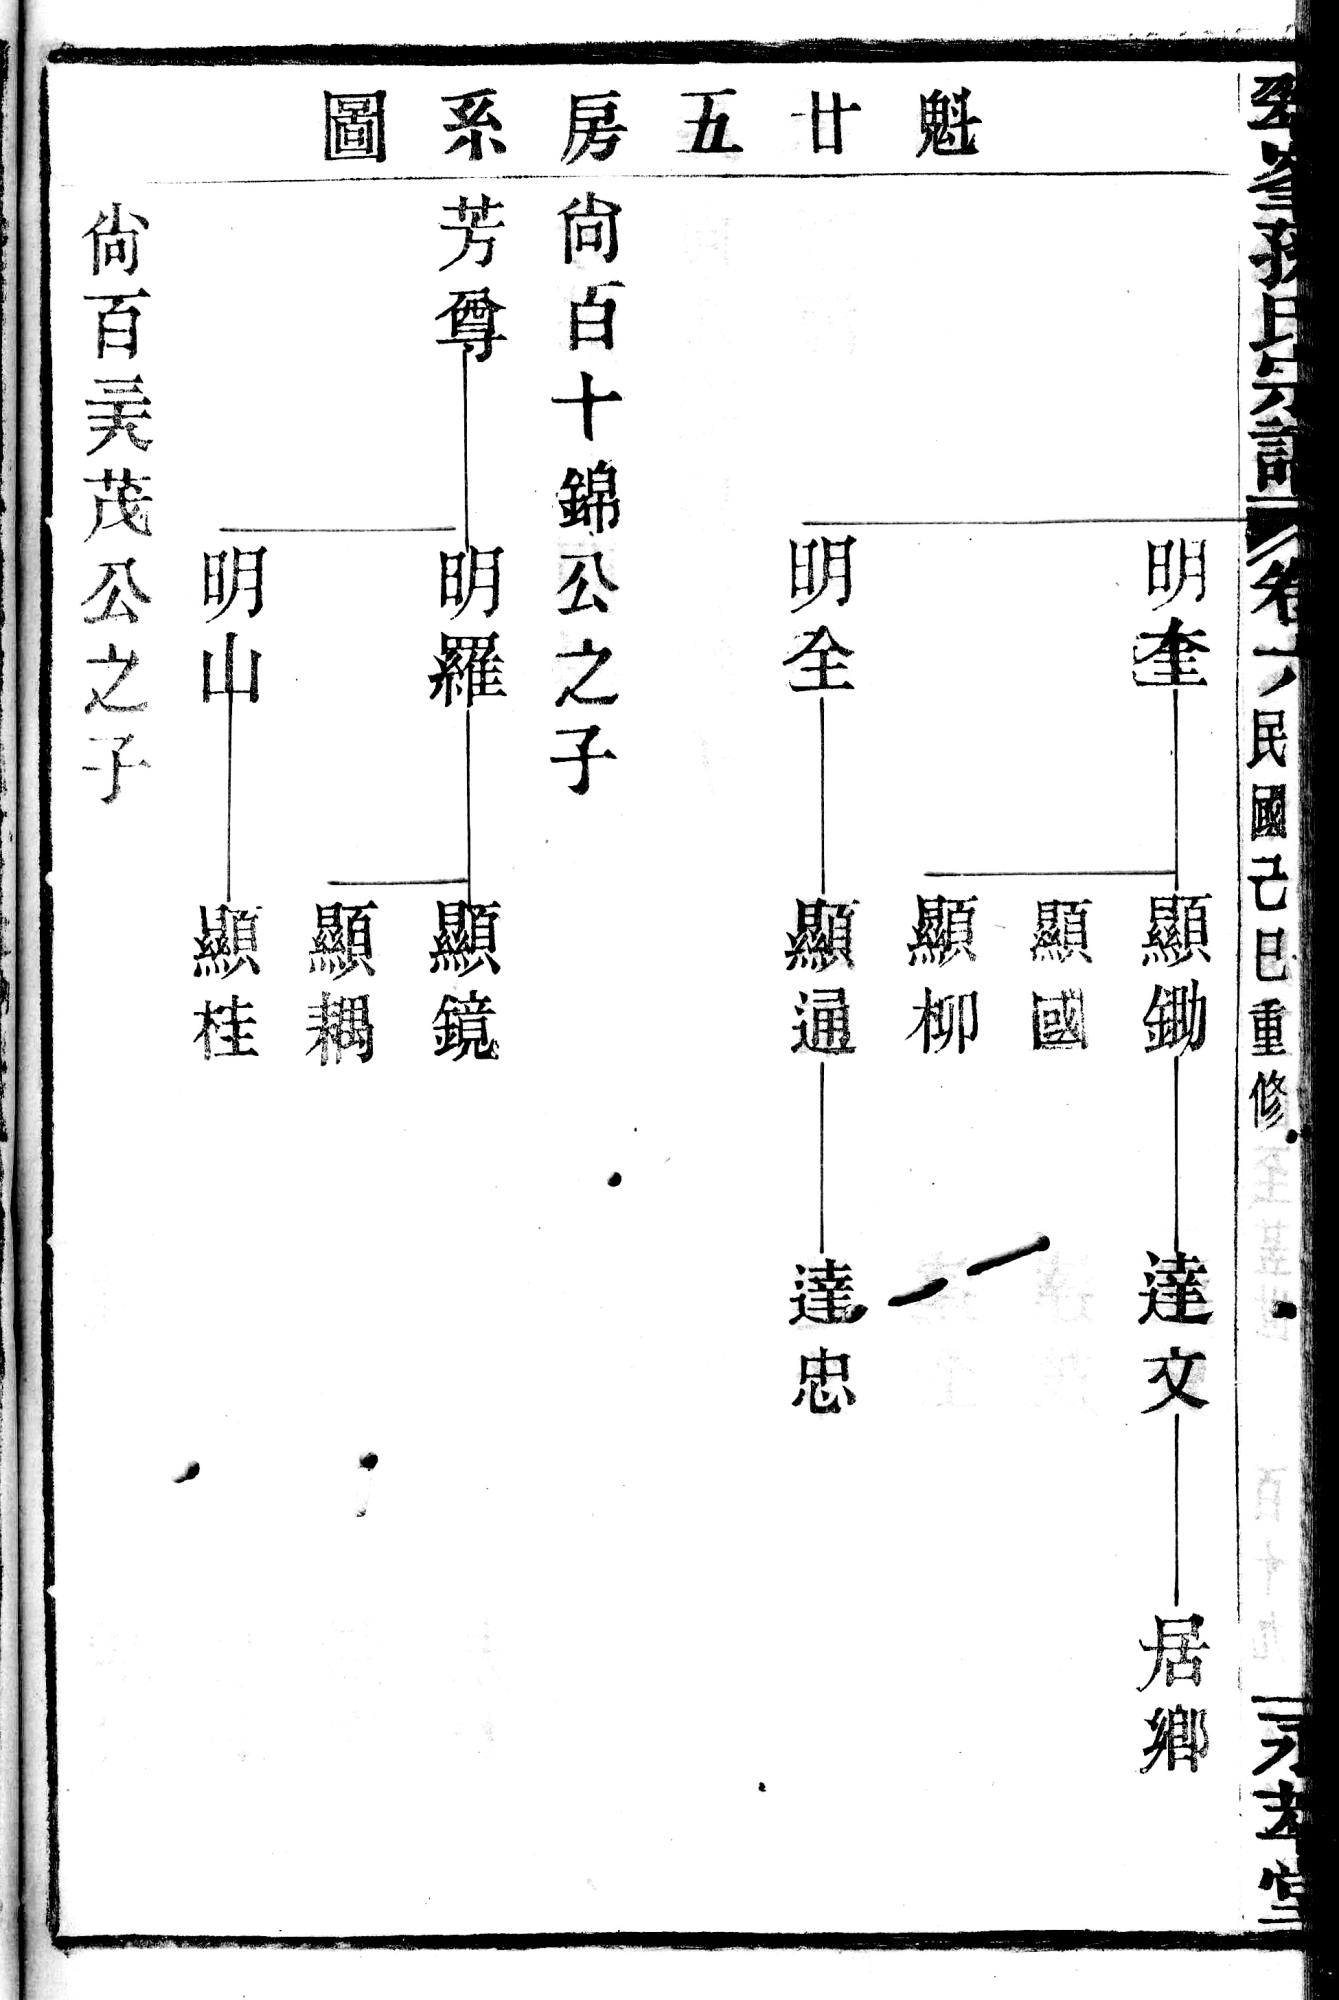 魁廿五房系圖
孫氏宗譜
卷六
民國己巳重修
堂
明奎
顯鋤
達文
居鄉
顯國
顯柳
明全
顯通
達忠
尙百十錦公之子
芳尊
明羅
顯鏡
顯耦
明山
顯桂
尙百
茂公之子